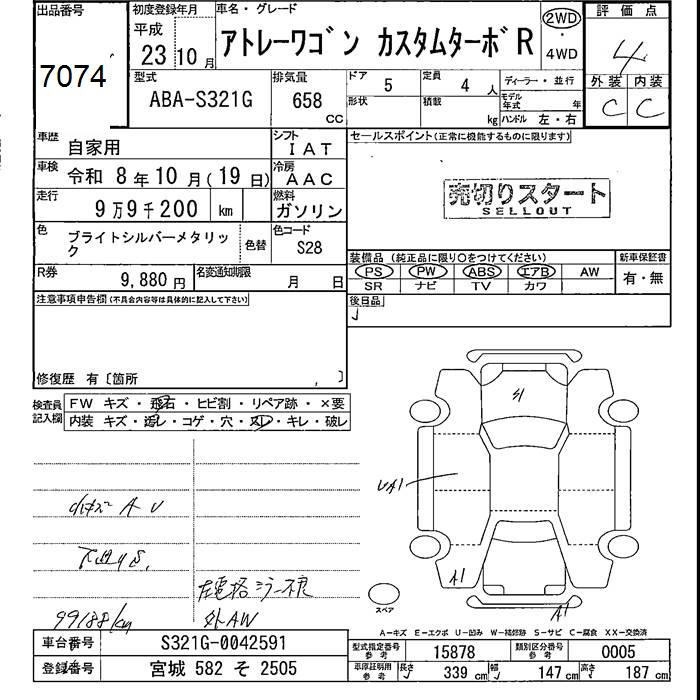 出品番号
7074
初度登録年月
平成
23 10 月
車名・グレード
アトレーワゴン カスタムターボR
2WD
・
4WD
評価点
4
外装 内装
C C
型式
ABA-S321G
排気量
658
CC
ドア 5
定員 4 人
ディーラー・並行
形状
積載 kg
モデル年式 年
ハンドル 左・右
車歴
自家用
シフト
IAT
セールスポイント(正常に機能するものに限ります)
車検
令和 8年10月(19日)
冷房
AAC
売切りスタート
SELLOUT
走行
9万9千200 km
燃料
ガソリン
色
ブライトシルバーメタリッ
ク
色替
色コード
S28
装備品(純正品に限り○をつけてください)
新車保証書
PS PW ABS エアB AW
有・無
SR ナビ TV カワ
R券
9,880円
名変通知期限
月 日
注意事項申告欄(不具合内容等は具体的に記入して下さい)
後日品
修復歴 有〔箇所 , 〕
検査員
記入欄
FW キズ・飛石・ヒビ割・リペア跡・×要
内装 キズ・汚レ・コゲ・穴・スレ・キレ・破レ
小キズ A U
下廻りS,
99188km
左電格ミラー不良
外AW
4
UA1
A1
A1
スペア
A―キズ E―エクボ U―凹み W―補修跡 S―サビ C―腐食 XX―交換済
車台番号
S321G-0042591
登録番号
宮城 582 そ 2505
型式指定番号
参考
15878
類別区分番号
参考
0005
車庫証明用
参考
長さ 339 cm
幅 147 cm
高さ 187 cm